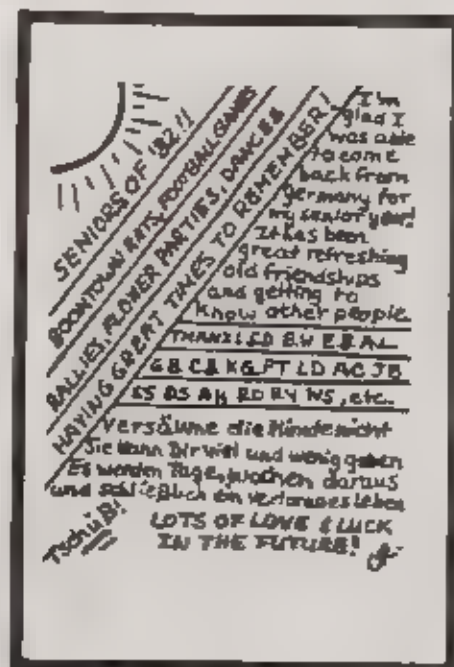 SENIORS OF '82!!
BOONTOWN RATS, FOOTBALL GAMES
RALLIES, FLOWER PARTIES, DANCES
HAVING GREAT TIMES TO REMEMBER!
I'm
glad I
was able
to come
back from
Germany for
my senior year!
It has been
great refreshing
old friendships
and getting to
know other people
THANX LED BW EB AL
GB CB KG PT LD AC JB
DS AH RD RY WS, etc.
Versäume die nicht
Sie kann Dir viel und wenig geben
Es werden Tage, wochen daraus
und schließlich ein verlorenes leben
Tschüß!
LOTS OF LOVE & LUCK
IN THE FUTURE!